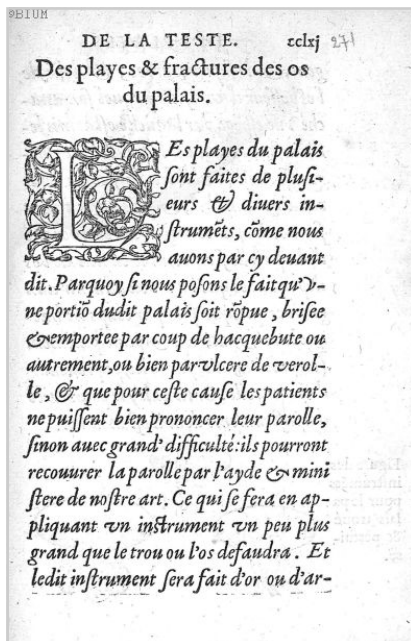 ©BIUM
DE LA TESTE. cclxj 271
Des playes & fractures des os
du palais.
LEs playes du palais
sont faites de plusi-
eurs & diuers in-
strumẽts, cõme nous
auons par cy deuant
dit. Parquoy si nous posons le fait qu'v-
ne portiõ dudit palais soit rõpue, brisee
& emportee par coup de hacquebute ou
autrement, ou bien par vlcere de verol-
le, & que pour ceste cause les patients
ne puissent bien prononcer leur parolle,
sinon auec grand' difficulté: ils pourront
recouurer la parolle par l'ayde & mini
stere de nostre art. Ce qui se fera en ap-
pliquant vn instrument vn peu plus
grand que le trou ou l'os defaudra. Et
ledit instrument sera fait d'or ou d'ar-